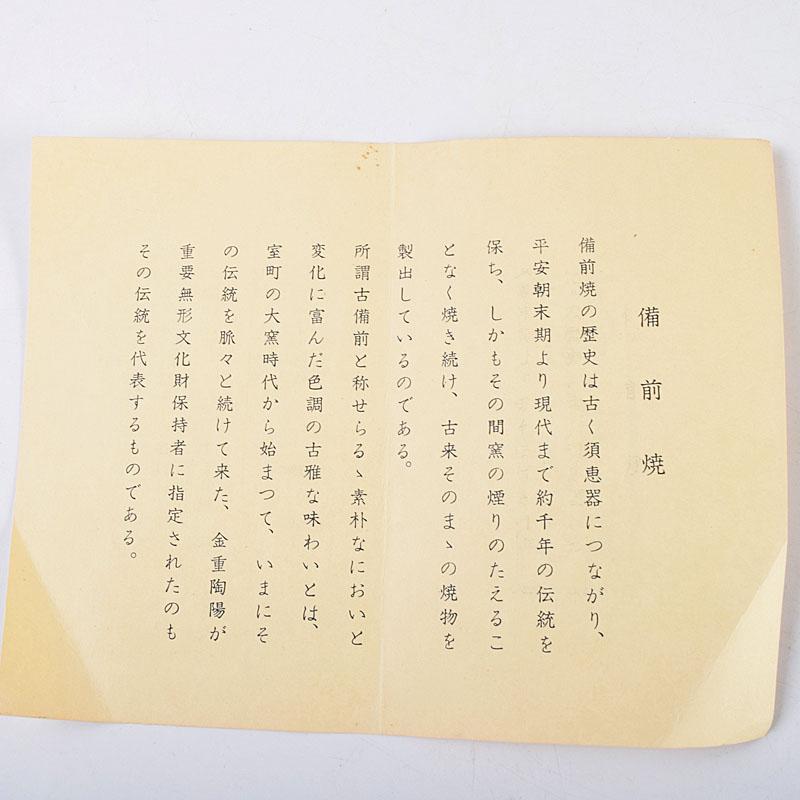 備前焼
備前焼の歴史は古く須恵器につながり、
平安朝末期より現代まで約千年の伝統を
保ち、しかもその間窯の煙りのたえるこ
となく焼き続け、古来そのまゝの焼物を
製出しているのである。
所謂古備前と称せらるゝ素朴なにおいと
変化に富んだ色調の古雅な味わいとは、
室町の大窯時代から始まつて、いまにそ
の伝統を脈々と続けて来た、金重陶陽が
重要無形文化財保持者に指定されたのも
その伝統を代表するものである。